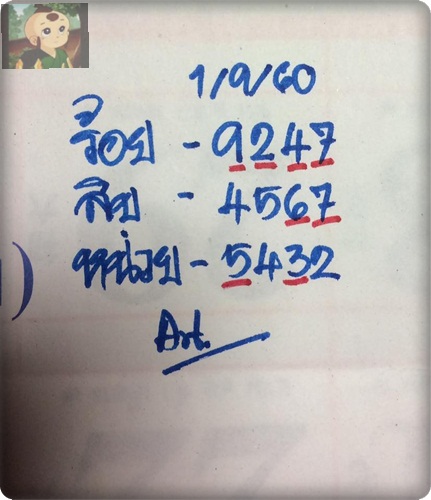 1/9/60
ร้อย - 9247
สิบ - 4567
หน่วย - 5432
Art.
)